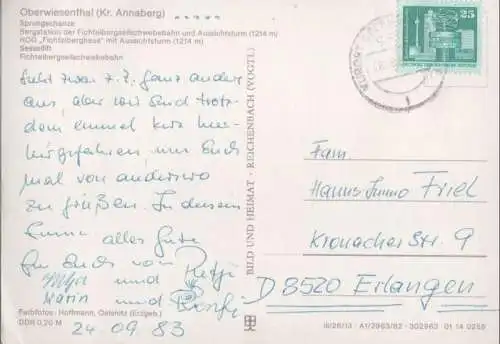 Oberwiesenthal (Kr. Annaberg)
Sprungschanze
Bergstation der Fichtelbergseilschwebebahn und Aussichtsturm (1214 m)
HOG "Fichtelberghaus" mit Aussichtsturm (1214 m)
Sessellift
Fichtelbergseilschwebebahn
Sieht zwar z. Z. ganz anders
aus, aber wir sind trotz-
dem einmal kurz hier-
hergefahren um Euch
mal von anderswo
zu grüßen. In diesem
Sinne alles Gute
für Euch von
und
Karin und
24 09 83
Farbfotos: Hoffmann, Oelsnitz (Erzgeb.)
DDR 0,20 M
BILD UND HEIMAT · REICHENBACH (VOGTL)
25
DDR
Fam.
Hanns Friel
Kronacher Str. 9
D 8520 Erlangen
III/26/13 · A1/2963/82 · 302963 01 14 0259